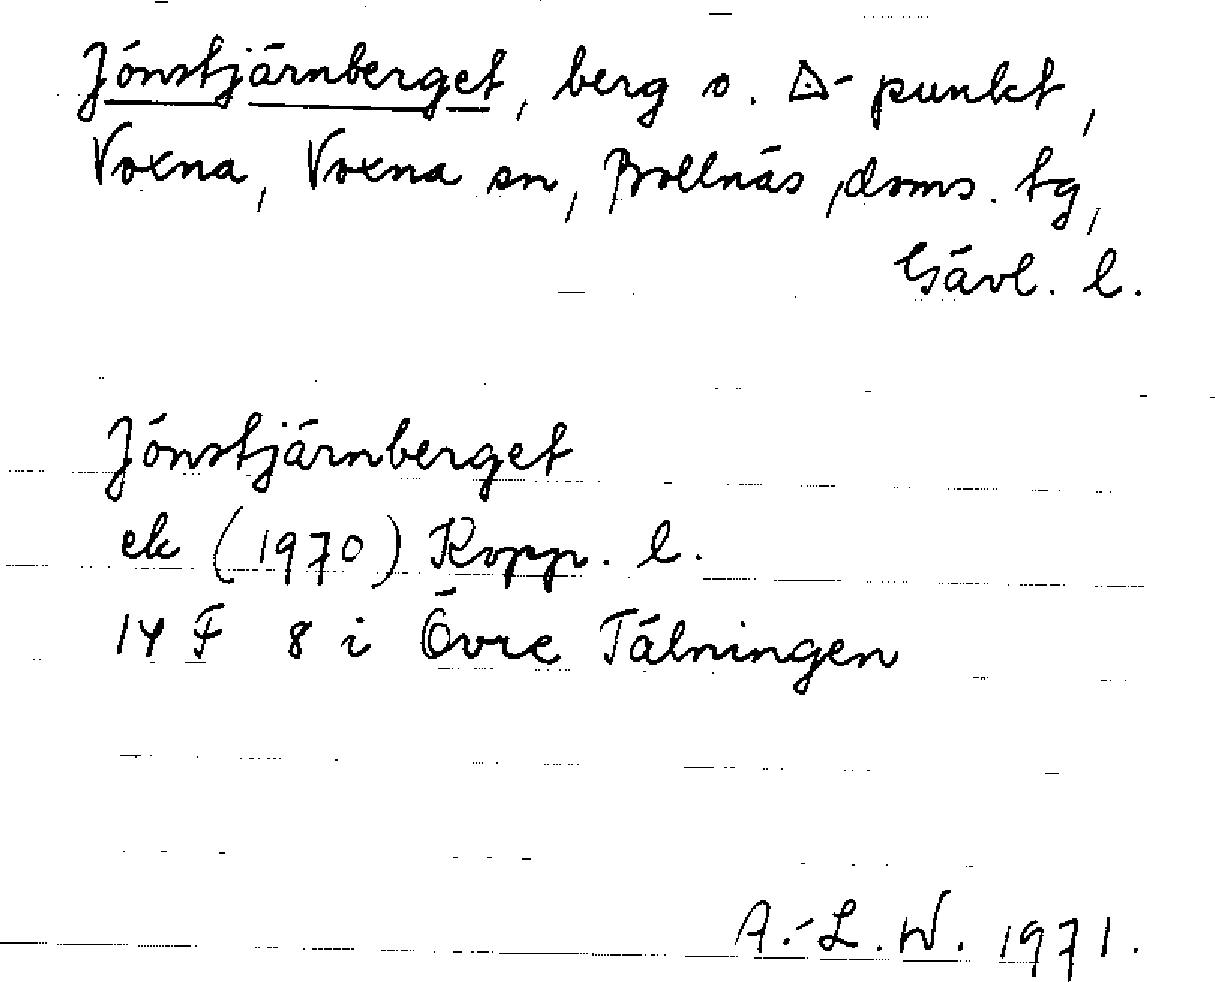 Jönstjärnberget, berg o. △-punkt,
Voxna, Voxna sn, Bollnäs doms. tg,
Gävl. l.
Jönstjärnberget
ek (1970) Kopp. l.
14 F 8 i Övre Tälningen
A.-L. W. 1971.